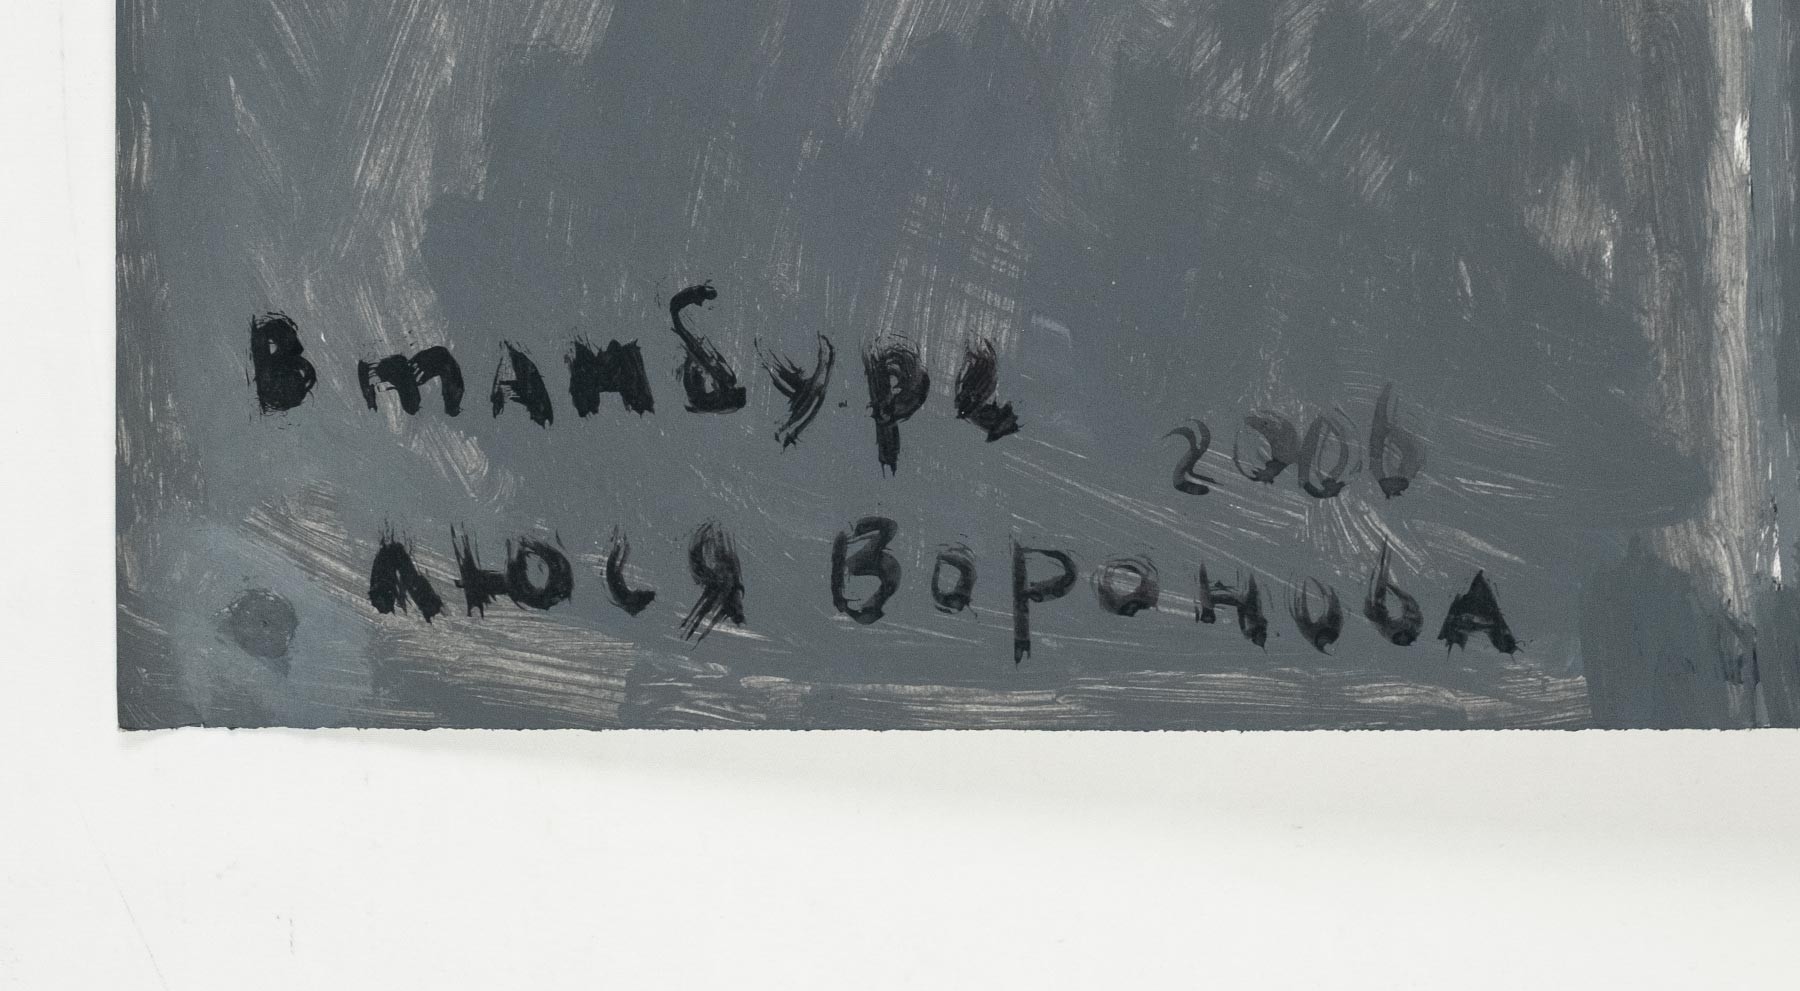 В тамбуре
2006
Люся Воронова